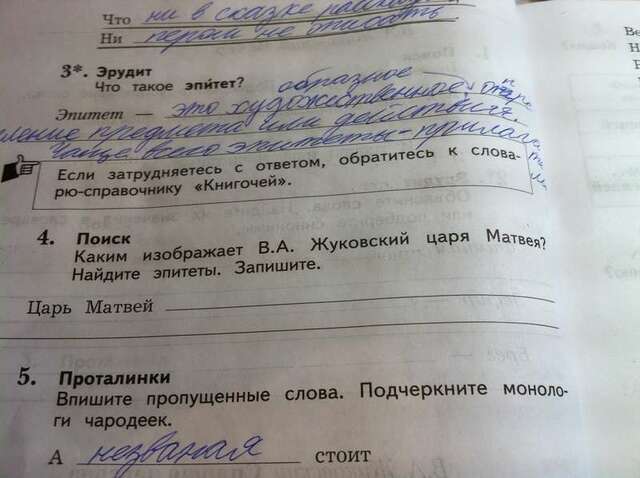 Что ни в сказке рассказать,
Ни пером не описать
3*. Эрудит
Что такое эпитет? образное
Эпитет — это художественное, опре
ление предмета или действия.
Чаще всего эпитеты - прилага
Если затрудняетесь с ответом, обратитесь к слова-
рю-справочнику «Книгочей».
4. Поиск
Каким изображает В.А. Жуковский царя Матвея?
Найдите эпитеты. Запишите.
Царь Матвей
5. Проталинки
Впишите пропущенные слова. Подчеркните моноло-
ги чародеек.
А незваная стоит